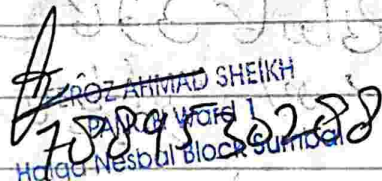 FEROZ AHMAD SHEIKH
PANCH Ward 1
7889530288
Halqa Nesbal Block Sumbal